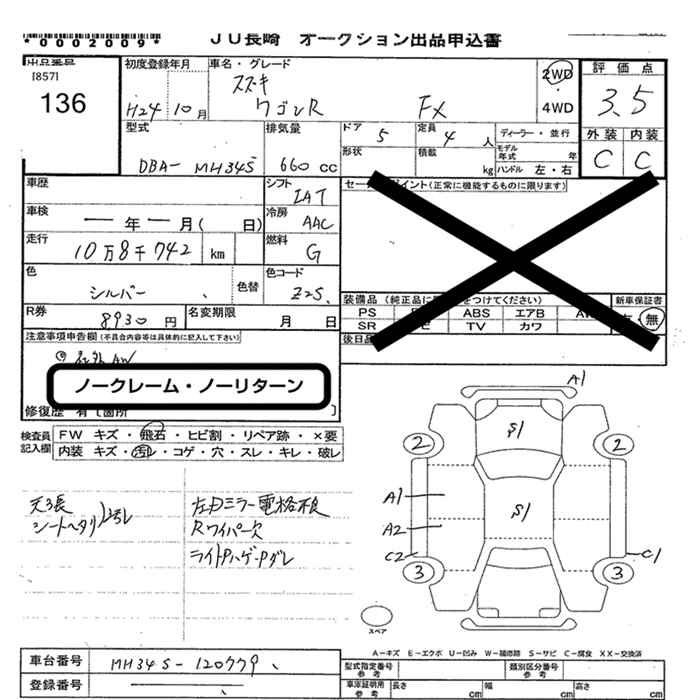 *0002009*
JU長崎 オークション出品申込書
出品番号
[857]
136
初度登録年月
H24年10月
車名・グレード
スズキ
ワゴンR FX
2WD
4WD
評価点
3.5
外装 内装
C C
型式
DBA- MH34S
排気量
660 cc
ドア 5
形状
定員 4 人
積載 kg
ディーラー・並行
モデル年式 年
ハンドル 左・右
車歴
シフト IAT
車検 ― 年 ― 月( 日)
冷房 AAC
走行
10万8千742 km
燃料 G
色
シルバー
色替
色コード
Z2S
R券
8930 円
名変期限
月 日
注意事項申告欄(不具合内容等は具体的に記入して下さい)
社外AW
ノークレーム・ノーリターン
修復歴 有〔箇所 〕
装備品
新車保証書
PS ABS エアB
SR TV カワ
無
後日品
検査員
記入欄
FW キズ・飛石・ヒビ割・リペア跡・×要
内装 キズ・汚レ・コゲ・穴・スレ・キレ・破レ
天張
シートヘタリ
左ドミラー電格不良
Rワイパー欠
ライトハゲ
A1
S1
2 2
A1
S1
A2
C2 C1
3 3
スペア
A-キズ E-エクボ U-凹み W-補修跡 S-サビ C-腐食 XX-交換済
車台番号 MH34S-120779
登録番号
型式指定番号
参考
類別区分番号
参考
車庫証明用
参考
長さ cm 幅 cm 高さ cm